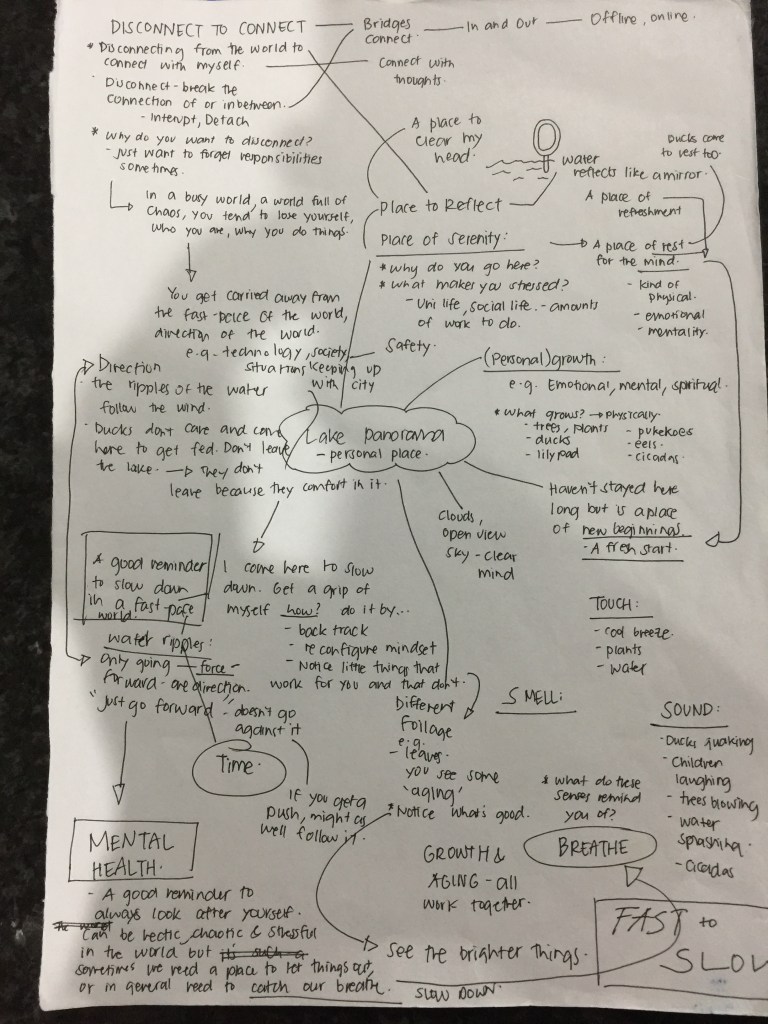 DISCONNECT TO CONNECT
Bridges
connect.
In and Out
Offline, online.
* Disconnecting from the world to
connect with myself.
Connect with
thoughts.
Disconnect - break the
connection of or inbetween.
- Interupt, Detach
* Why do you want to disconnect?
- just want to forget responsibilities
sometimes.
In a busy world, a world full of
chaos, you tend to lose yourself,
who you are, why you do things.
You get carried away from
the fast-pace of the world,
direction of the world.
e.g - technology, society
situations keeping up
with city
A place to
clear my
head.
water
reflects like a mirror.
Ducks come
to rest too.
Place to Reflect
A place of
refreshment
Place of serenity:
A place of rest
for the mind.
- kind of
physical.
- emotional
- mentality.
* Why do you go here?
* What makes you stressed?
- Uni life, social life. - amounts
of work to do.
Safety.
(Personal) growth:
e.g. Emotional, mental, spiritual.
* What grows? → physically
- trees, plants
- ducks
- lilypad
- pukekoes
- eels.
- cicadas
Direction
the ripples of the water
follow the wind.
- Ducks don't care and come
here to get fed. Don't leave
the lake. → They don't
leave because they comfort in it.
Lake panorama
- personal place.
Haven't stayed here
long but is a place
of new beginnings.
- A fresh start.
Clouds,
open view
sky - clear
mind
A good reminder
to slow down
in a fast-pace
world.
I come here to slow
down. Get a grip of
myself how? do it by...
- back track
- reconfigure mindset
- Notice little things that
work for you and that don't.
TOUCH:
- cool breeze.
- plants
- water
water ripples:
only going - force -
forward - one direction.
"just go forward" - doesn't go
against it
Time.
If you get a
push, might as
well follow it.
Different
Foilage
e.g.
- leaves.
you see some
'aging'
* Notice what's good.
SMELL:
SOUND:
- Ducks quaking
- Children
laughing
- trees blowing
- water
splashing.
- Cicadas
* What do these
senses remind
you of?
BREATHE
GROWTH &
AGING - all
work together.
MENTAL
HEALTH.
- A good reminder to
always look after yourself.
Can be hectic, chaotic & stressful
in the world but
sometimes we need a place to let things out,
or in general need to catch our breathe.
See the brighter things.
SLOW DOWN.
FAST to
SLOW